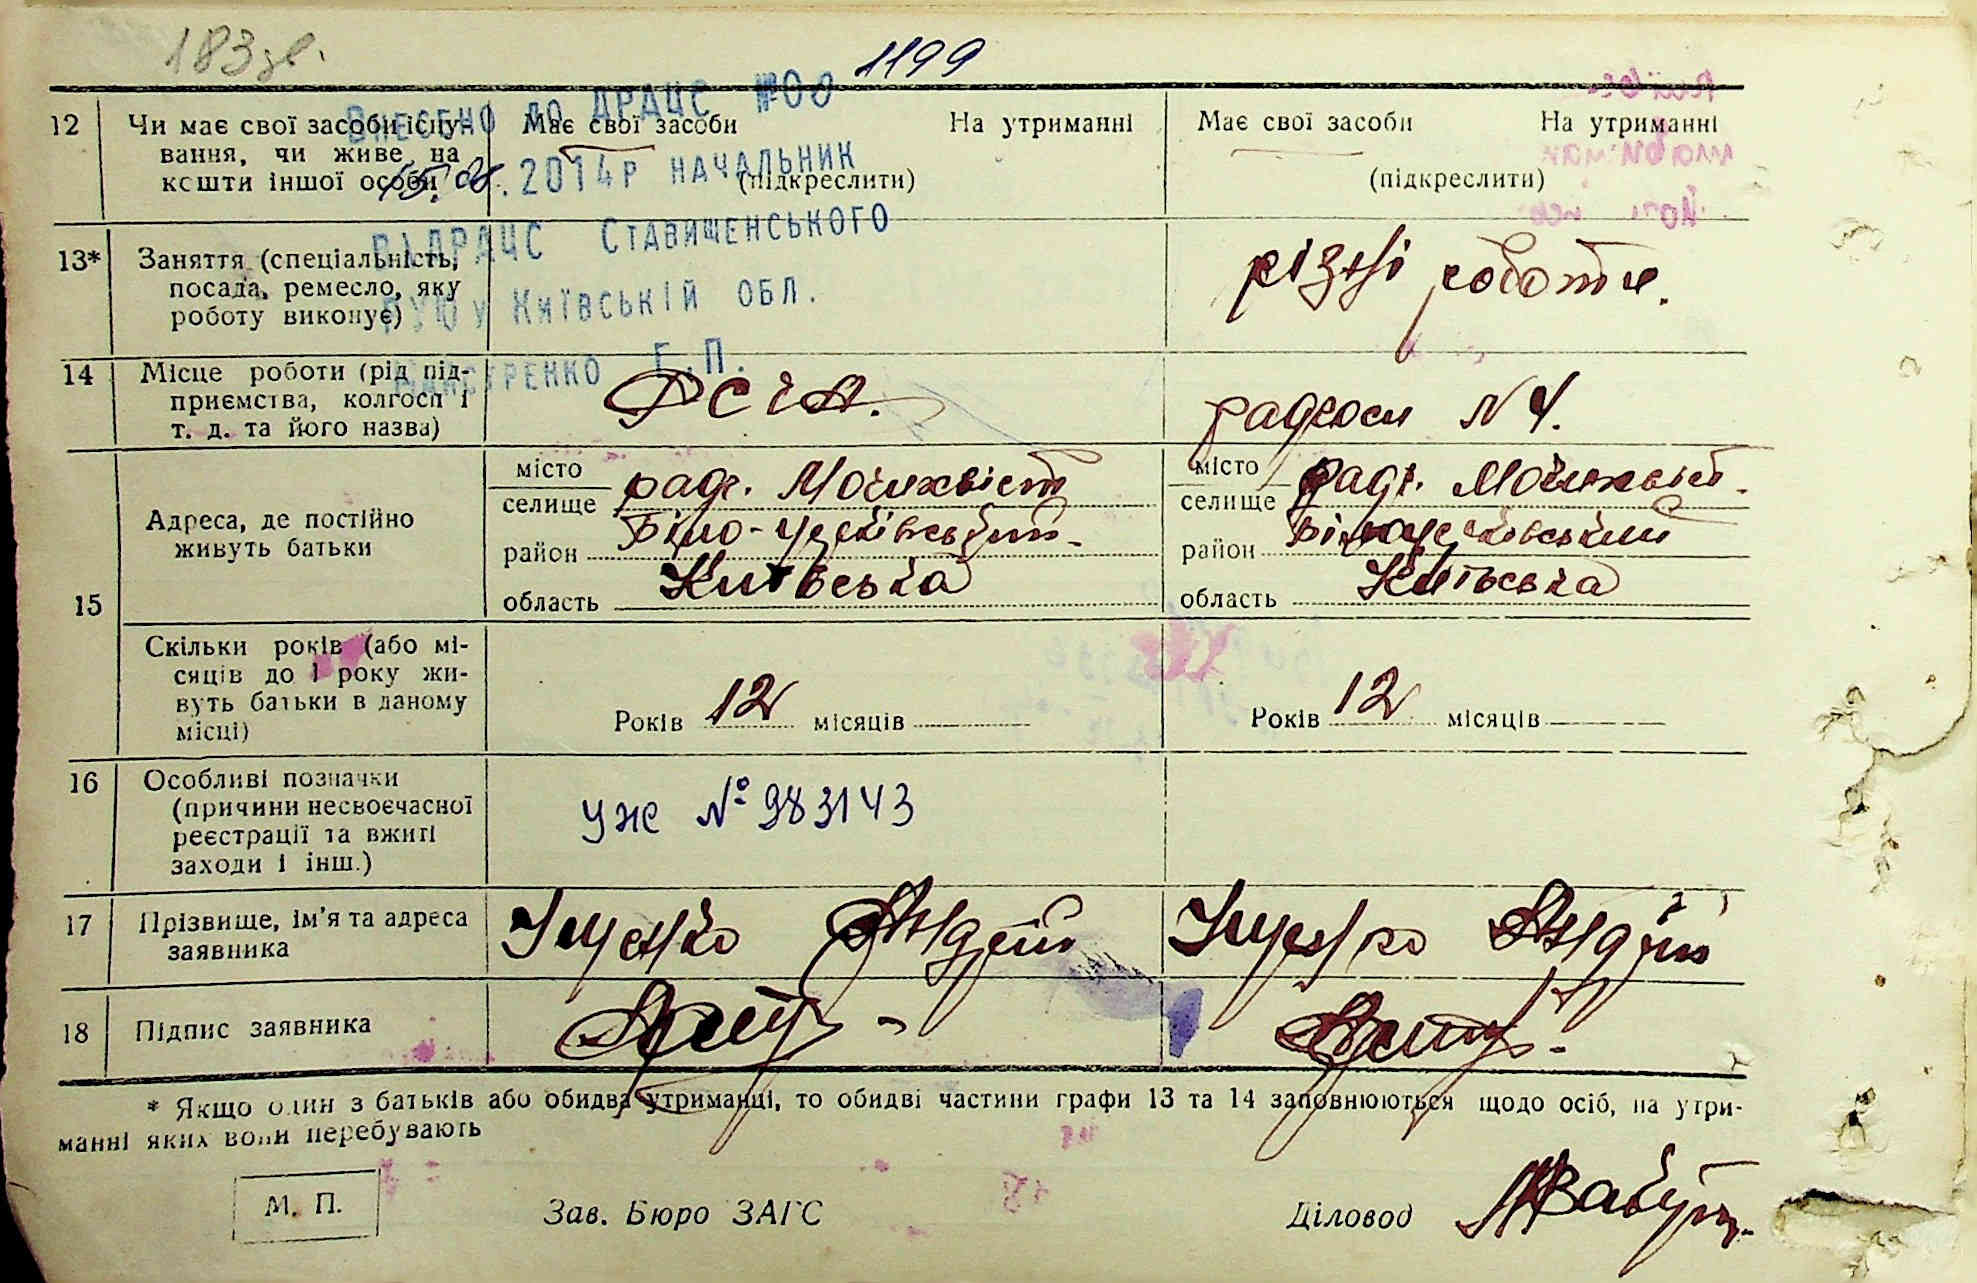 183 зв.
1199
Внесено до ДРАЦС №00
15. 01. 2014р начальник
ВДРАЦС Ставищенського
РУЮ у Київській обл.
Г.П.
12 Чи має свої засоби існу- Має свої засоби На утриманні Має свої засоби На утриманні
вання, чи живе на
кошти іншої особи (підкреслити) (підкреслити)
13* Заняття (спеціальність, різні роботи.
посада, ремесло, яку
роботу виконує)
14 Місце роботи (рід під- РСЧА. радгосп N 4.
приємства, колгосп і
т. д. та його назва)
15 Адреса, де постійно
живуть батьки
місто
селище радг. місто
селище радг.
район Біло-Церківський район Білоцерківський
область Київська область Київська
Скільки років (або мі-
сяців до 1 року жи-
вуть батьки в даному
місці)
Років 12 місяців Років 12 місяців
16 Особливі позначки
(причини несвоєчасної
реєстрації та вжиті
заходи і інш.)
УЖ № 983143
17 Прізвище, ім'я та адреса Іщенко Андрій Іщенко Андрій
заявника
18 Підпис заявника
* Якщо один з батьків або обидва утриманці, то обидві частини графи 13 та 14 заповнюються щодо осіб, на утри-
манні яких вони перебувають
М. П. Зав. Бюро ЗАГС Діловод